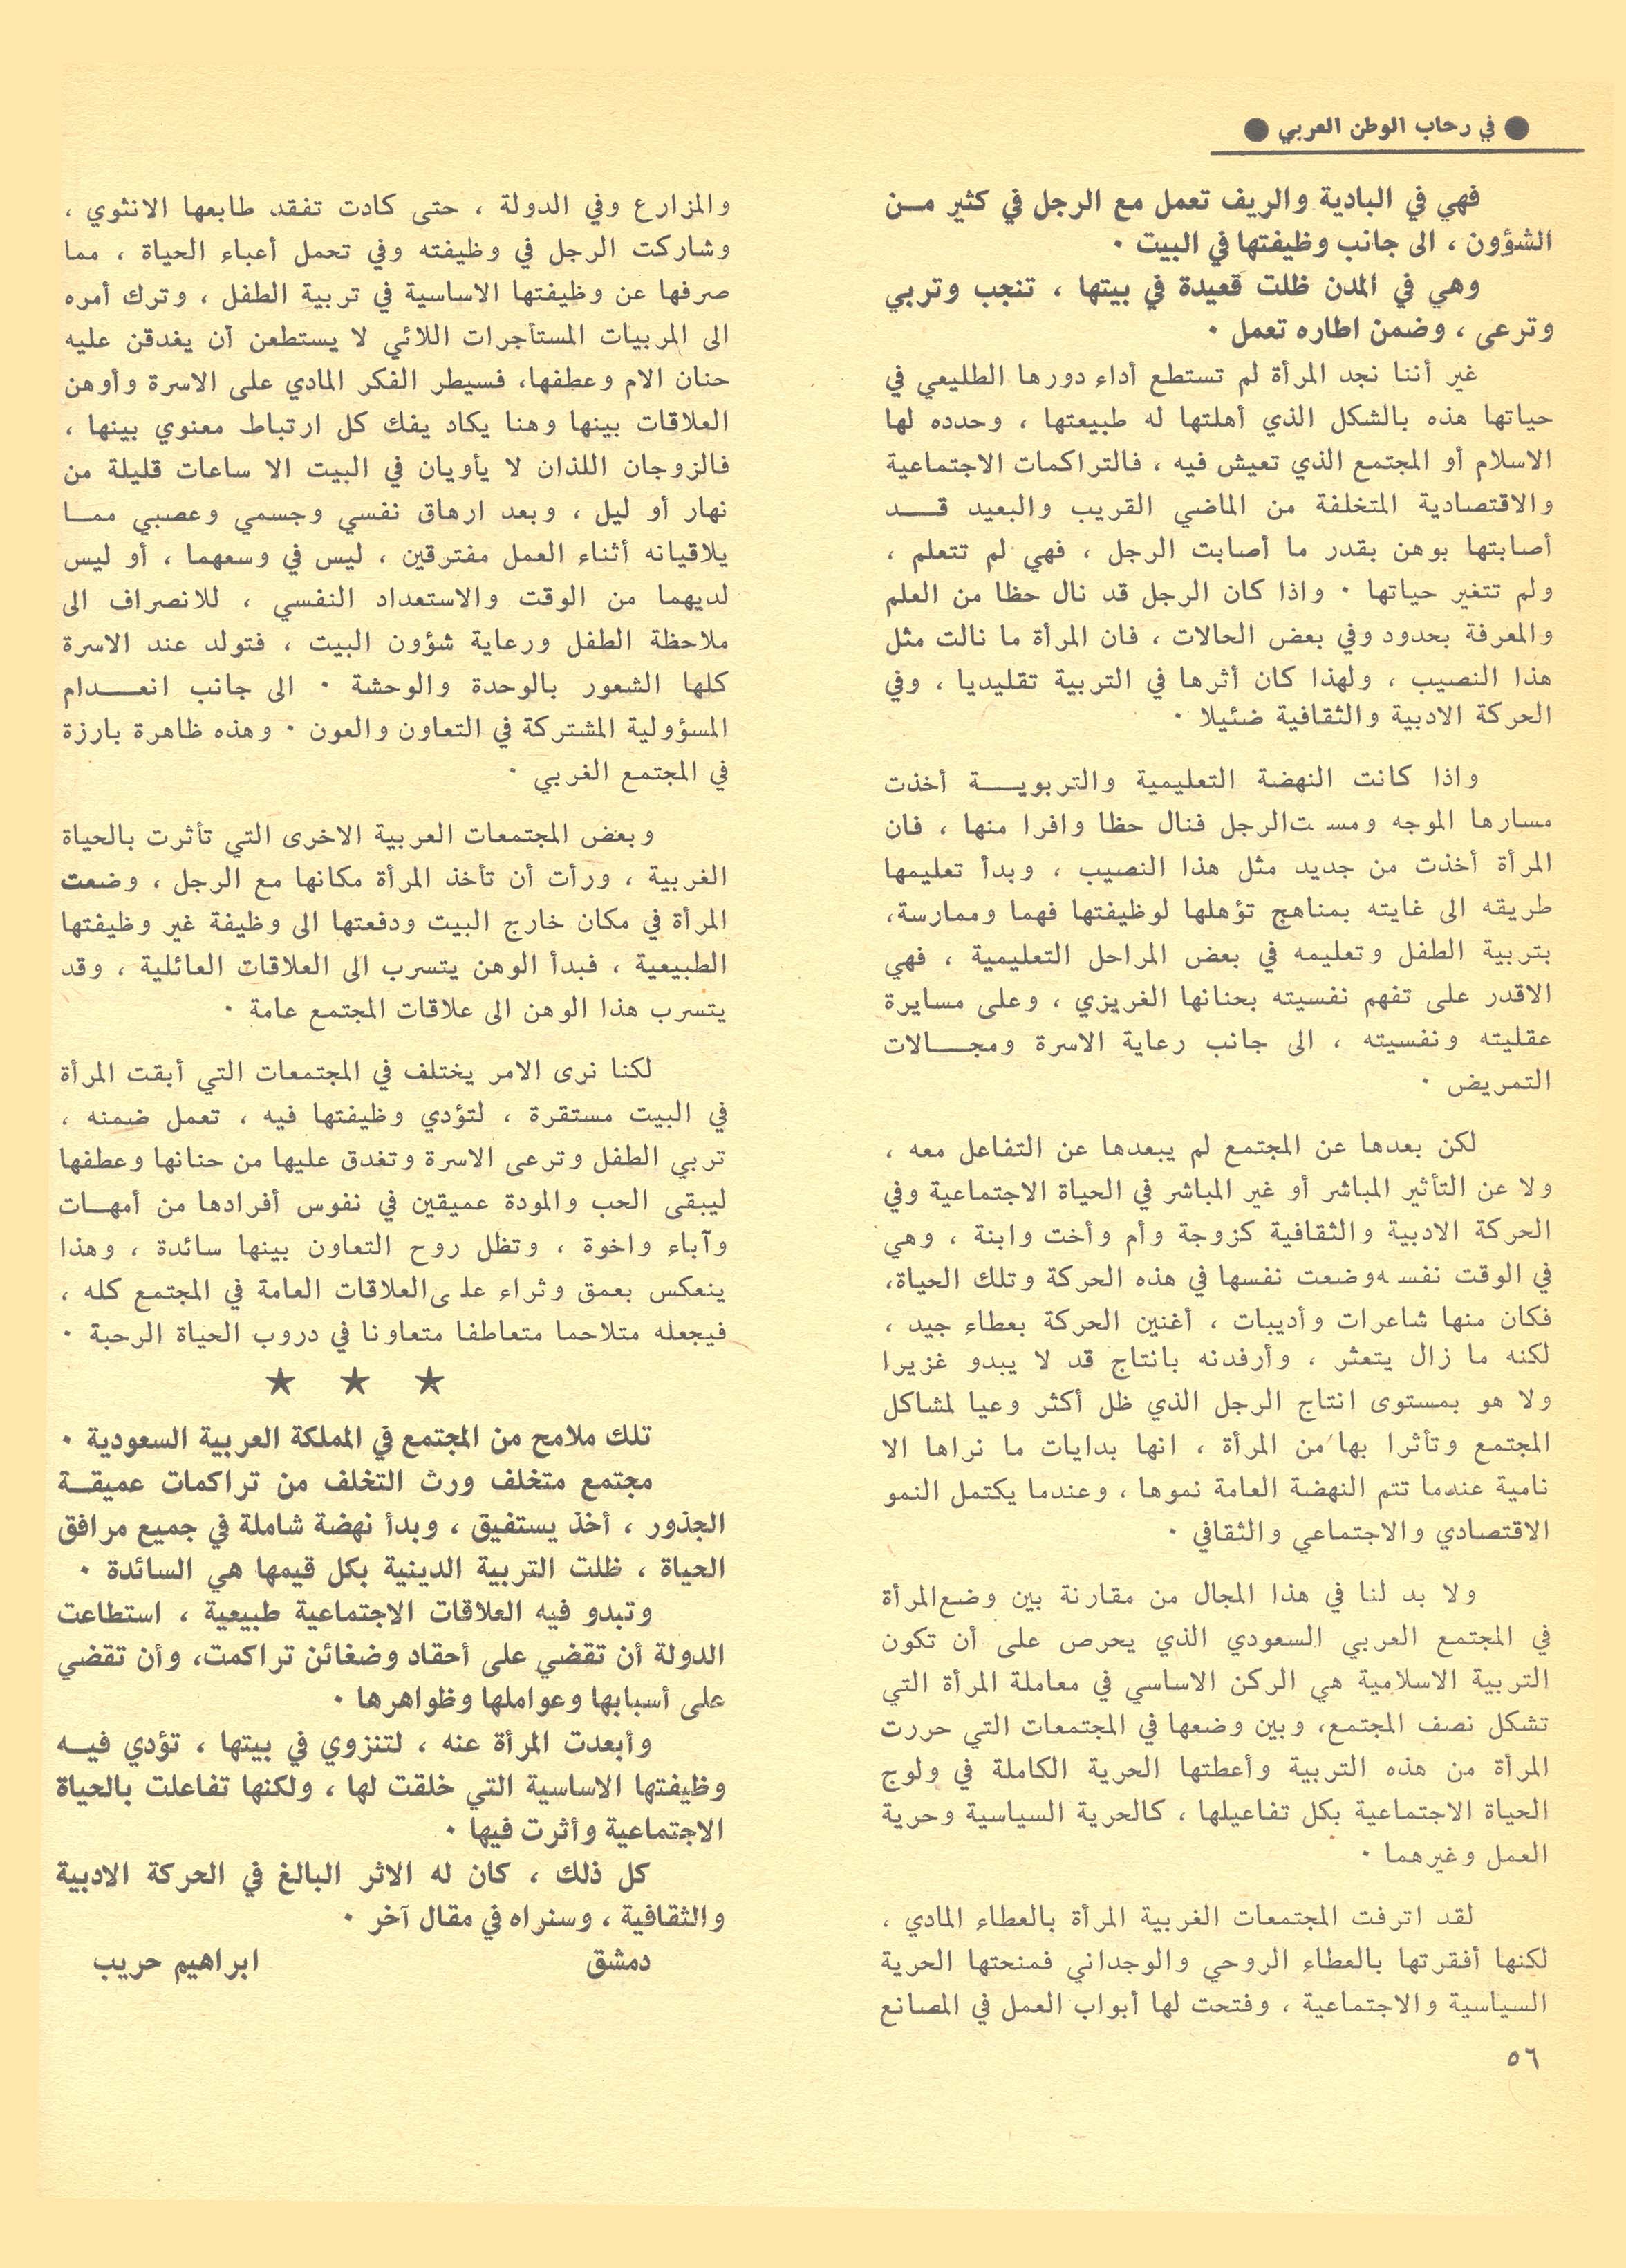 ● في رحاب الوطن العربي ●
فهي في البادية والريف تعمل مع الرجل في كثير مــن
الشؤون ، الى جانب وظيفتها في البيت ٠
وهي في المدن ظلت قعيدة في بيتها ، تنجب وتربي
وترعى ، وضمن اطاره تعمل ٠
غير أننا نجد المرأة لم تستطع أداء دورها الطليعي في
حياتها هذه بالشكل الذي أهلتها له طبيعتها ، وحدده لها
الاسلام أو المجتمع الذي تعيش فيه ، فالتراكمات الاجتماعية
والاقتصادية المتخلفة من الماضي القريب والبعيد قــد
أصابتها بوهن بقدر ما أصابت الرجل ، فهي لم تتعلم ،
ولم تتغير حياتها ٠ واذا كان الرجل قد نال حظا من العلم
والمعرفة بحدود وفي بعض الحالات ، فان المرأة ما نالت مثل
هذا النصيب ، ولهذا كان أثرها في التربية تقليديا ، وفي
الحركة الادبية والثقافية ضئيلا ٠
واذا كانت النهضة التعليمية والتربويــة أخذت
مسارها الموجه ومست الرجل فنال حظا وافرا منها ، فان
المرأة أخذت من جديد مثل هذا النصيب ، وبدأ تعليمها
طريقه الى غايته بمناهج تؤهلها لوظيفتها فهما وممارسة،
بتربية الطفل وتعليمه في بعض المراحل التعليمية ، فهي
الاقدر على تفهم نفسيته بحنانها الغريزي ، وعلى مسايرة
عقليته ونفسيته ، الى جانب رعاية الاسرة ومجــالات
التمريض ٠
لكن بعدها عن المجتمع لم يبعدها عن التفاعل معه ،
ولا عن التأثير المباشر أو غير المباشر في الحياة الاجتماعية وفي
الحركة الادبية والثقافية كزوجة وأم وأخت وابنة ، وهي
في الوقت نفسه وضعت نفسها في هذه الحركة وتلك الحياة،
فكان منها شاعرات وأديبات ، أغنين الحركة بعطاء جيد ،
لكنه ما زال يتعثر ، وأرفدنه بانتاج قد لا يبدو غزيرا
ولا هو بمستوى انتاج الرجل الذي ظل أكثر وعيا لمشاكل
المجتمع وتأثرا بها من المرأة ، انها بدايات ما نراها الا
نامية عندما تتم النهضة العامة نموها ، وعندما يكتمل النمو
الاقتصادي والاجتماعي والثقافي ٠
ولا بد لنا في هذا المجال من مقارنة بين وضع المرأة
في المجتمع العربي السعودي الذي يحرص على أن تكون
التربية الاسلامية هي الركن الاساسي في معاملة المرأة التي
تشكل نصف المجتمع، وبين وضعها في المجتمعات التي حررت
المرأة من هذه التربية وأعطتها الحرية الكاملة في ولوج
الحياة الاجتماعية بكل تفاعيلها ، كالحرية السياسية وحرية
العمل وغيرهما ٠
لقد اترفت المجتمعات الغربية المرأة بالعطاء المادي ،
لكنها أفقرتها بالعطاء الروحي والوجداني فمنحتها الحرية
السياسية والاجتماعية ، وفتحت لها أبواب العمل في المصانع
والمزارع وفي الدولة ، حتى كادت تفقد طابعها الانثوي ،
وشاركت الرجل في وظيفته وفي تحمل أعباء الحياة ، مما
صرفها عن وظيفتها الاساسية في تربية الطفل ، وترك أمره
الى المربيات المستأجرات اللائي لا يستطعن أن يغدقن عليه
حنان الام وعطفها، فسيطر الفكر المادي على الاسرة وأوهن
العلاقات بينها وهنا يكاد يفك كل ارتباط معنوي بينها ،
فالزوجان اللذان لا يأويان في البيت الا ساعات قليلة من
نهار أو ليل ، وبعد ارهاق نفسي وجسمي وعصبي ممــا
يلاقيانه أثناء العمل مفترقين ، ليس في وسعهما ، أو ليس
لديهما من الوقت والاستعداد النفسي ، للانصراف الى
ملاحظة الطفل ورعاية شؤون البيت ، فتولد عند الاسرة
كلها الشعور بالوحدة والوحشة ٠ الى جانب انعــدام
المسؤولية المشتركة في التعاون والعون ٠ وهذه ظاهرة بارزة
في المجتمع الغربي ٠
وبعض المجتمعات العربية الاخرى التي تأثرت بالحياة
الغربية ، ورأت أن تأخذ المرأة مكانها مع الرجل ، وضعت
المرأة في مكان خارج البيت ودفعتها الى وظيفة غير وظيفتها
الطبيعية ، فبدأ الوهن يتسرب الى العلاقات العائلية ، وقد
يتسرب هذا الوهن الى علاقات المجتمع عامة ٠
لكنا نرى الامر يختلف في المجتمعات التي أبقت المرأة
في البيت مستقرة ، لتؤدي وظيفتها فيه ، تعمل ضمنه ،
تربي الطفل وترعى الاسرة وتغدق عليها من حنانها وعطفها
ليبقى الحب والمودة عميقين في نفوس أفرادها من أمهــات
وآباء واخوة ، وتظل روح التعاون بينها سائدة ، وهذا
ينعكس بعمق وثراء على العلاقات العامة في المجتمع كله ،
فيجعله متلاحما متعاطفا متعاونا في دروب الحياة الرحبة ٠
★ ★ ★
تلك ملامح من المجتمع في المملكة العربية السعودية ٠
مجتمع متخلف ورث التخلف من تراكمات عميقــة
الجذور ، أخذ يستفيق ، وبدأ نهضة شاملة في جميع مرافق
الحياة ، ظلت التربية الدينية بكل قيمها هي السائدة ٠
وتبدو فيه العلاقات الاجتماعية طبيعية ، استطاعت
الدولة أن تقضي على أحقاد وضغائن تراكمت، وأن تقضي
على أسبابها وعواملها وظواهرها ٠
وأبعدت المرأة عنه ، لتنزوي في بيتها ، تؤدي فيــه
وظيفتها الاساسية التي خلقت لها ، ولكنها تفاعلت بالحياة
الاجتماعية وأثرت فيها ٠
كل ذلك ، كان له الاثر البالغ في الحركة الادبية
والثقافية ، وسنراه في مقال آخر ٠
دمشق ابراهيم حريب
٥٦